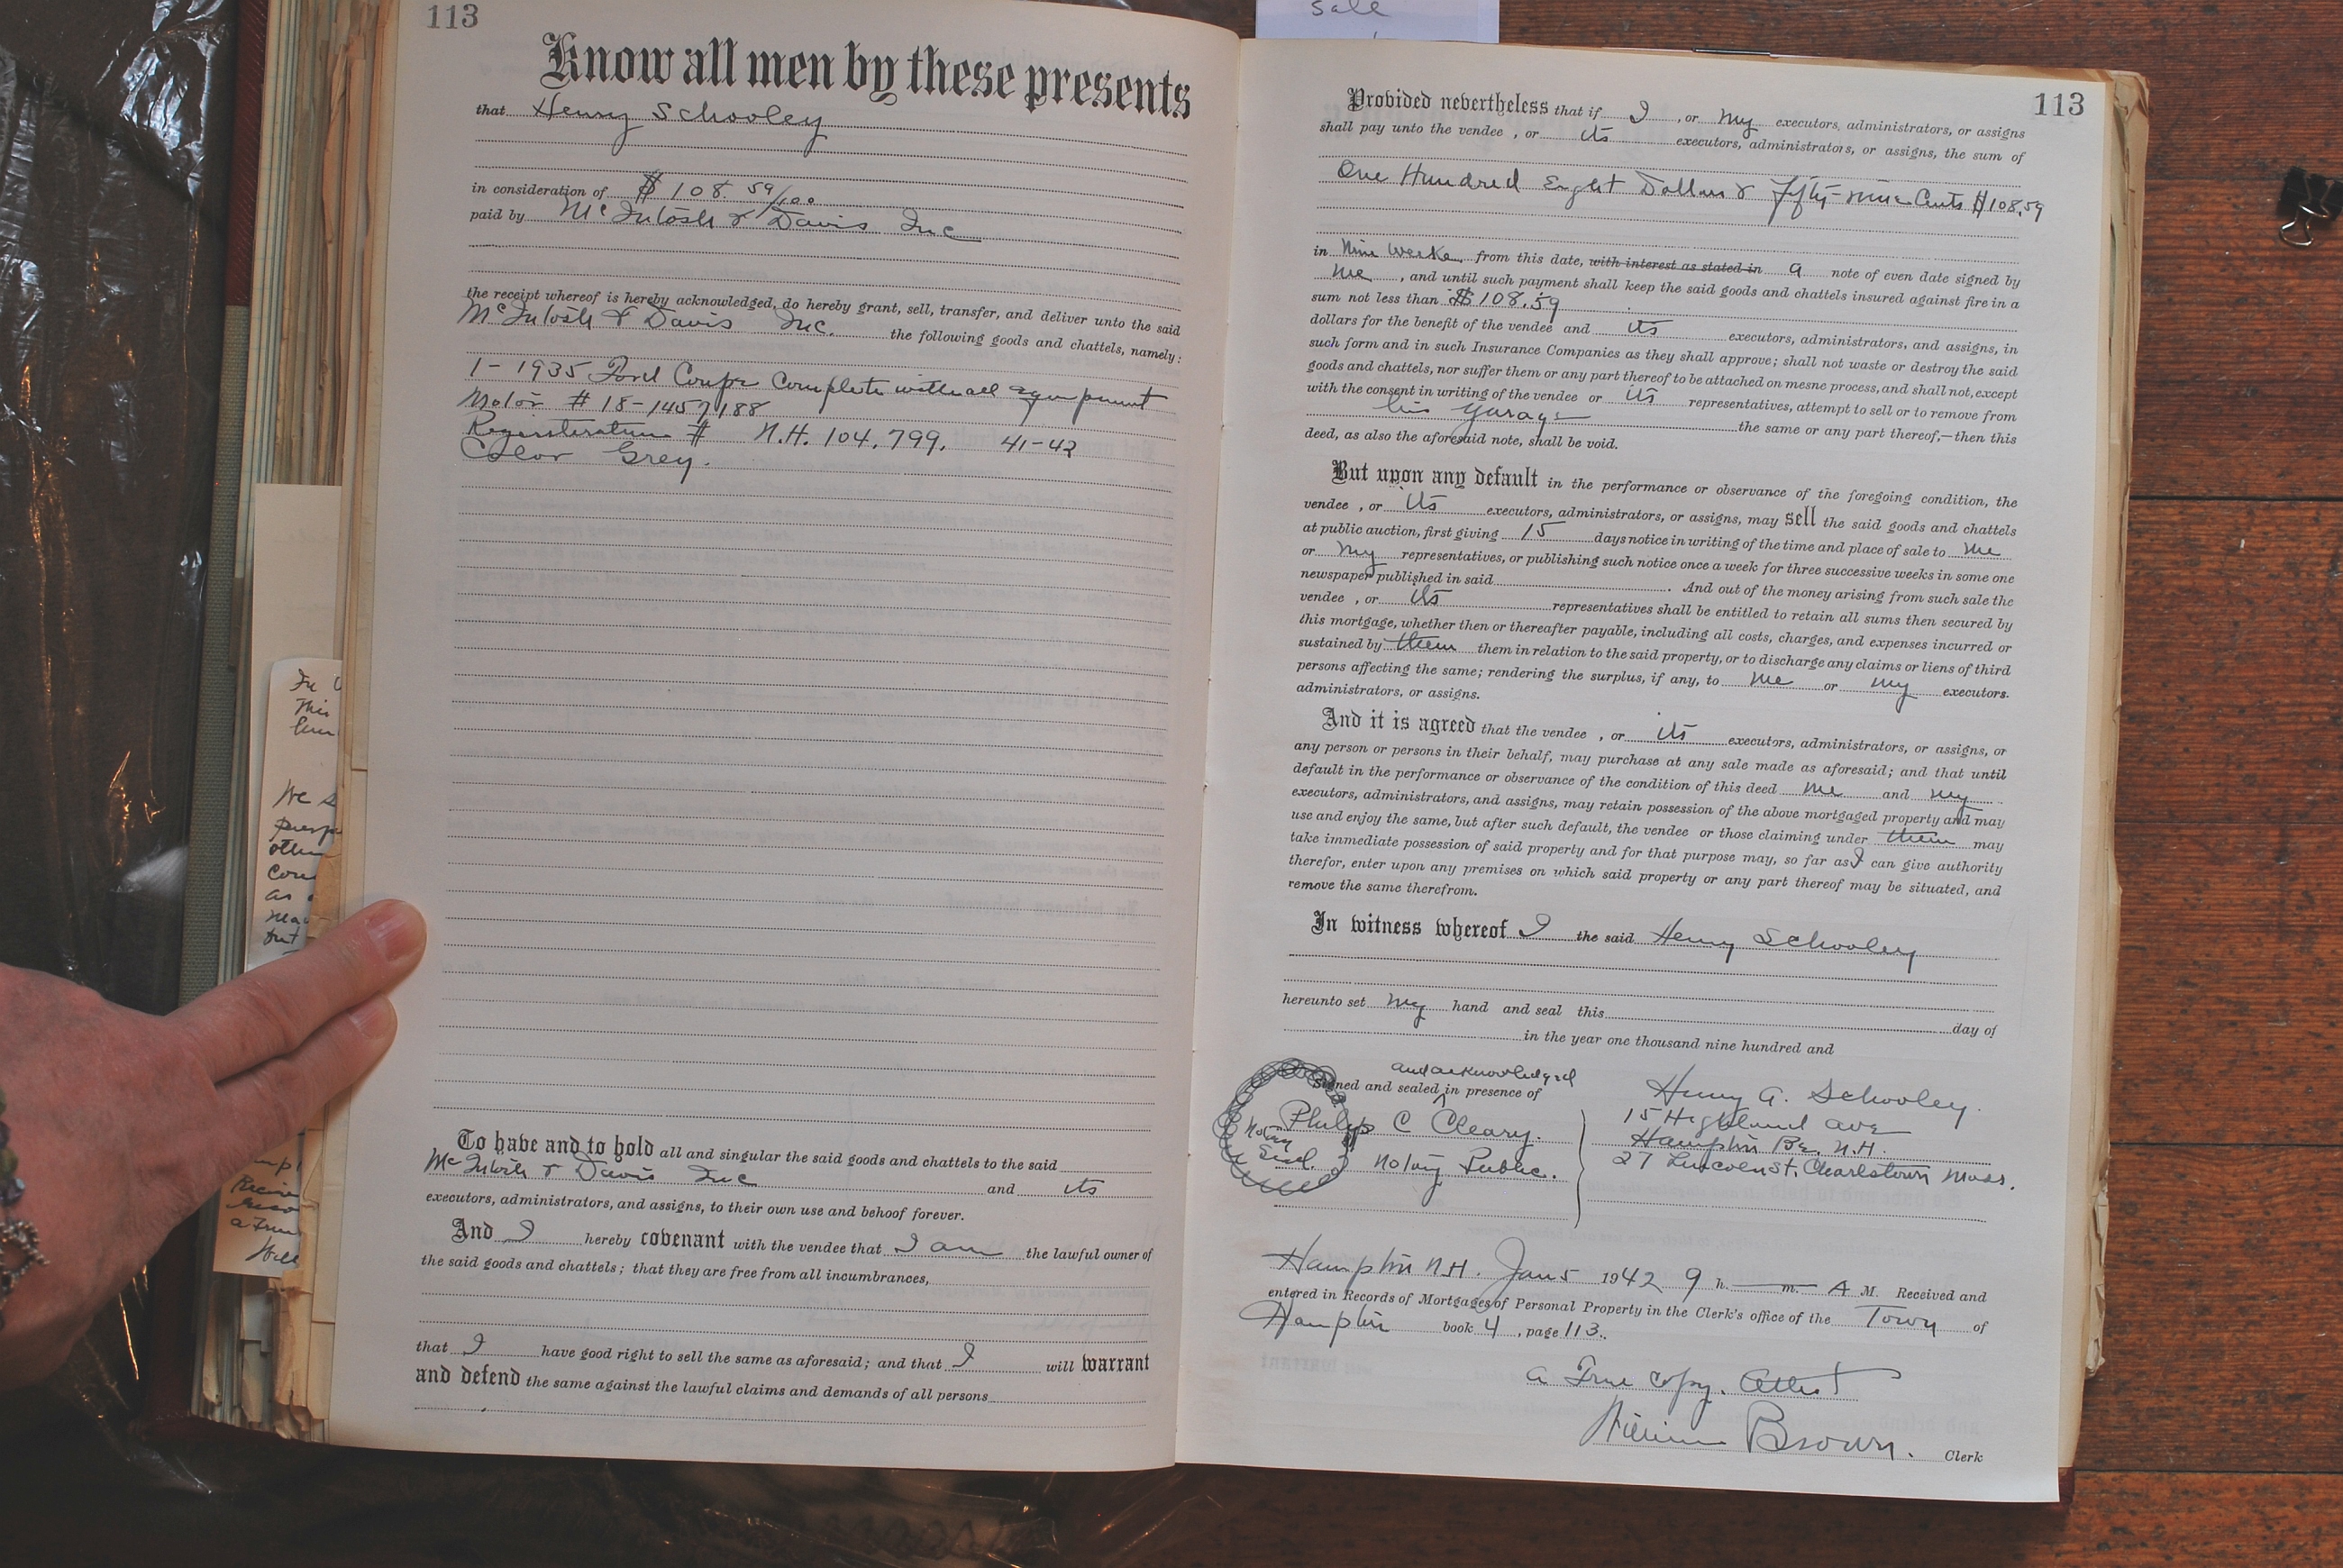 113
Know all men by these presents
that Henry Schooley
in consideration of $108.59/100
paid by McIntosh & Davis Inc
the receipt whereof is hereby acknowledged, do hereby grant, sell, transfer, and deliver unto the said
McIntosh & Davis Inc. the following goods and chattels, namely:
1 - 1935 Ford Coupe Complete with all equipment
Motor # 18-1457188
Registeration # N.H. 104,799. 41-42
Color Grey.
To have and to hold all and singular the said goods and chattels to the said
McIntosh & Davis Inc and its
executors, administrators, and assigns, to their own use and behoof forever.
And I hereby covenant with the vendee that I am the lawful owner of
the said goods and chattels; that they are free from all incumbrances,
that I have good right to sell the same as aforesaid; and that I will warrant
and defend the same against the lawful claims and demands of all persons
sale
113
Provided nevertheless that if I, or my executors, administrators, or assigns
shall pay unto the vendee, or its executors, administrators, or assigns, the sum of
One Hundred Eight Dollars & fifty-nine Cents $108.59
in Nine Weeks from this date, with interest as stated in a note of even date signed by
me, and until such payment shall keep the said goods and chattels insured against fire in a
sum not less than $108.59
dollars for the benefit of the vendee and its executors, administrators, and assigns, in
such form and in such Insurance Companies as they shall approve; shall not waste or destroy the said
goods and chattels, nor suffer them or any part thereof to be attached on mesne process, and shall not, except
with the consent in writing of the vendee or its representatives, attempt to sell or to remove from
his garage the same or any part thereof,—then this
deed, as also the aforesaid note, shall be void.
But upon any default in the performance or observance of the foregoing condition, the
vendee, or its executors, administrators, or assigns, may sell the said goods and chattels
at public auction, first giving 15 days notice in writing of the time and place of sale to me
or my representatives, or publishing such notice once a week for three successive weeks in some one
newspaper published in said . And out of the money arising from such sale the
vendee, or its representatives shall be entitled to retain all sums then secured by
this mortgage, whether then or thereafter payable, including all costs, charges, and expenses incurred or
sustained by them them in relation to the said property, or to discharge any claims or liens of third
persons affecting the same; rendering the surplus, if any, to me or my executors.
administrators, or assigns.
And it is agreed that the vendee, or its executors, administrators, or assigns, or
any person or persons in their behalf, may purchase at any sale made as aforesaid; and that until
default in the performance or observance of the condition of this deed me and my
executors, administrators, and assigns, may retain possession of the above mortgaged property and may
use and enjoy the same, but after such default, the vendee or those claiming under them may
take immediate possession of said property and for that purpose may, so far as I can give authority
therefor, enter upon any premises on which said property or any part thereof may be situated, and
remove the same therefrom.
In witness whereof I the said Henry Schooley
hereunto set my hand and seal this day of
in the year one thousand nine hundred and
and acknowledged
Signed and sealed in presence of
Philip C Cleary.
Notary Public.
Notary
Seal.
Henry A. Schooley.
15 Highland Ave
Hampton Be. N.H.
27 Lincoln St. Charlestown Mass.
Hampton N.H. Jan 5 1942 9 h. m. A M. Received and
entered in Records of Mortgages of Personal Property in the Clerk's office of the Town of
Hampton book 4, page 113.
A True Copy. Attest
William Brown. Clerk